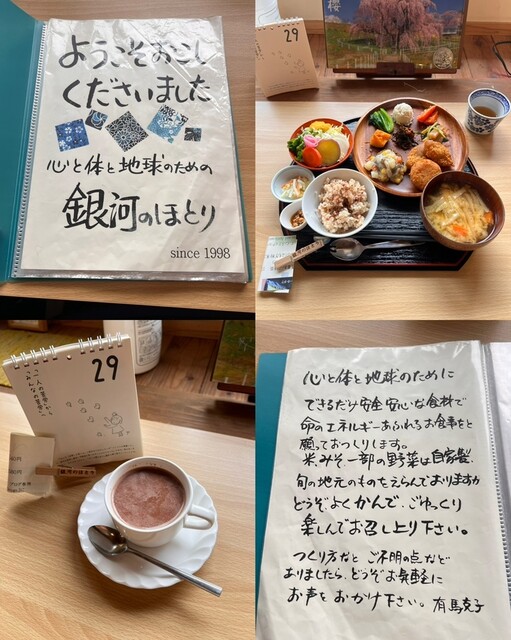 ようこそおこし
くださいました
心と体と地球のための
銀河のほとり
since 1998
桜
29
29
"一人の百歩から
みんなの一歩へ"
心と体と地球のために
できるだけ安全安心な食材で
命のエネルギーあふれるお食事をと
願っておつくりします。
米、みそ、一部の野菜は自家製、
旬の地元のものをえらんでおりますが
どうぞよくかんで、ごゆっくり
楽しんでお召し上り下さい。
つくり方など ご不明の点など
ありましたら、どうぞお気軽に
お声をおかけ下さい。 有馬克子